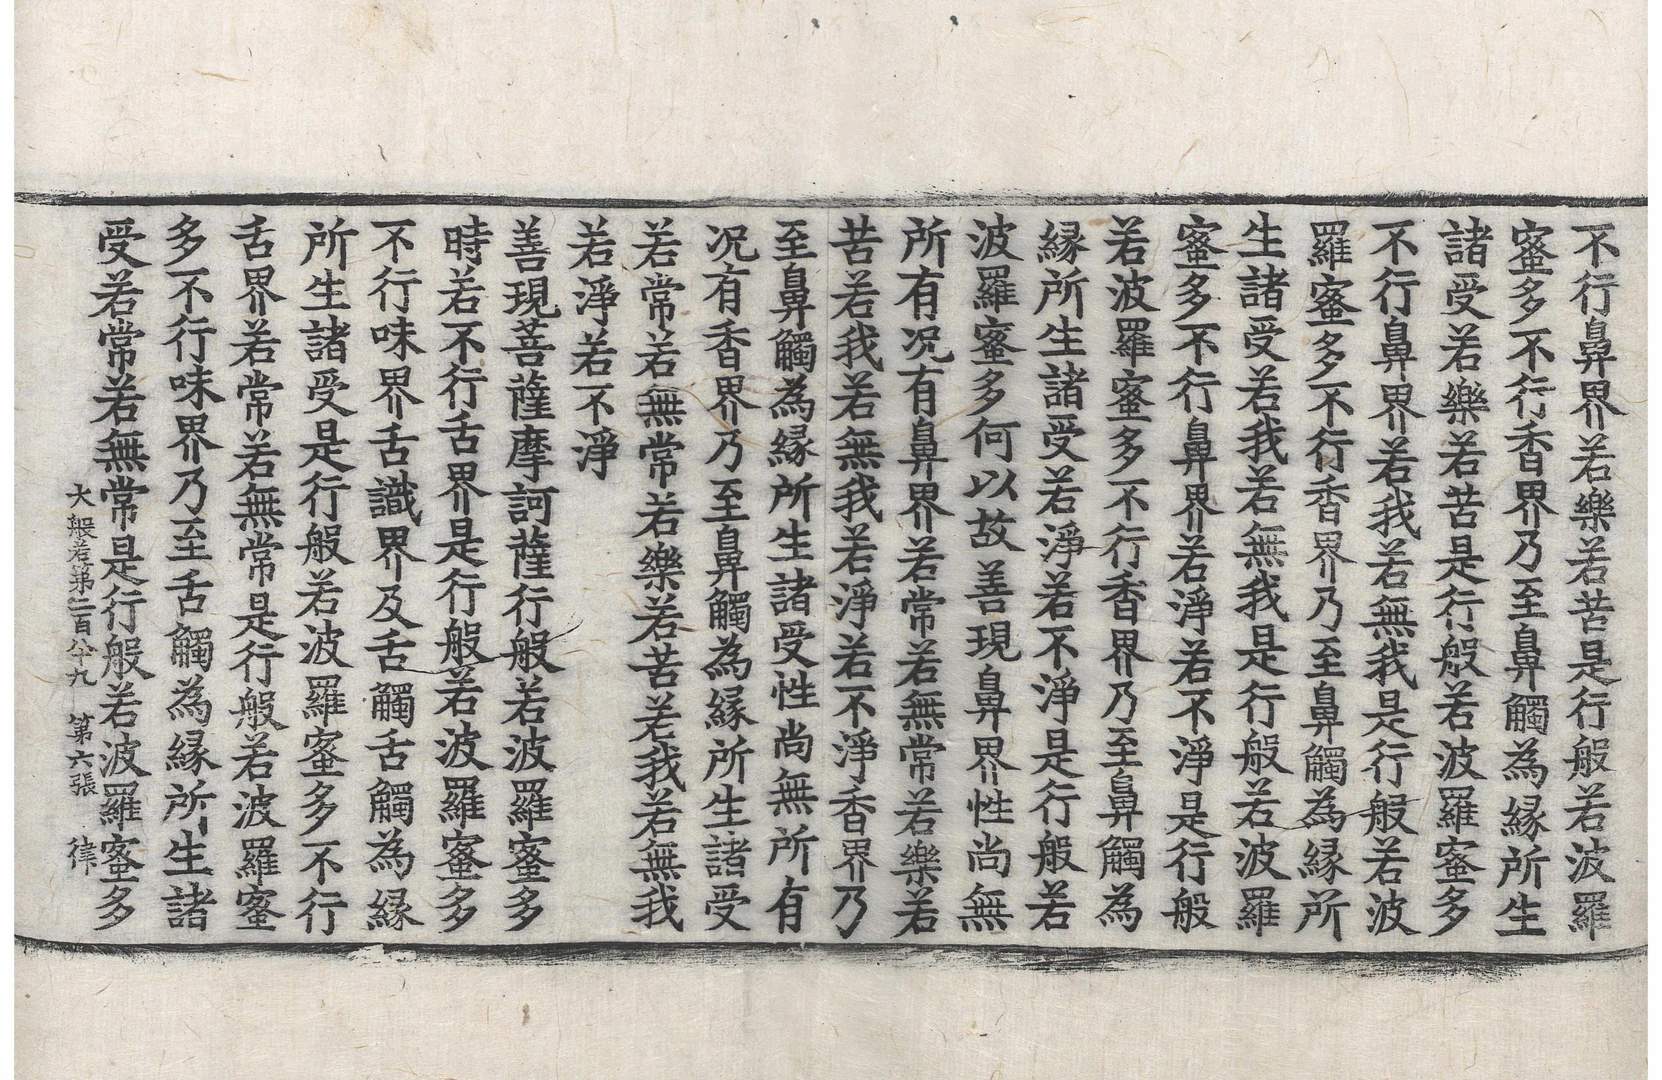 不行鼻界若樂若苦是行般若波羅
蜜多不行香界乃至鼻觸為縁所生
諸受若樂若苦是行般若波羅蜜多
不行鼻界若我若無我是行般若波
羅蜜多不行香界乃至鼻觸為縁所
生諸受若我若無我是行般若波羅
蜜多不行鼻界若淨若不淨是行般
若波羅蜜多不行香界乃至鼻觸為
縁所生諸受若淨若不淨是行般若
波羅蜜多何以故善現鼻界性尚無
所有况有鼻界若常若無常若樂若
苦若我若無我若淨若不淨香界乃
至鼻觸為縁所生諸受性尚無所有
况有香界乃至鼻觸為縁所生諸受
若常若無常若樂若苦若我若無我
若淨若不淨
善現菩薩摩訶薩行般若波羅蜜多
時若不行舌界是行般若波羅蜜多
不行味界舌識界及舌觸舌觸為縁
所生諸受是行般若波羅蜜多不行
舌界若常若無常是行般若波羅蜜
多不行味界乃至舌觸為縁所生諸
受若常若無常是行般若波羅蜜多
大般若第二百八十九 第六張 律